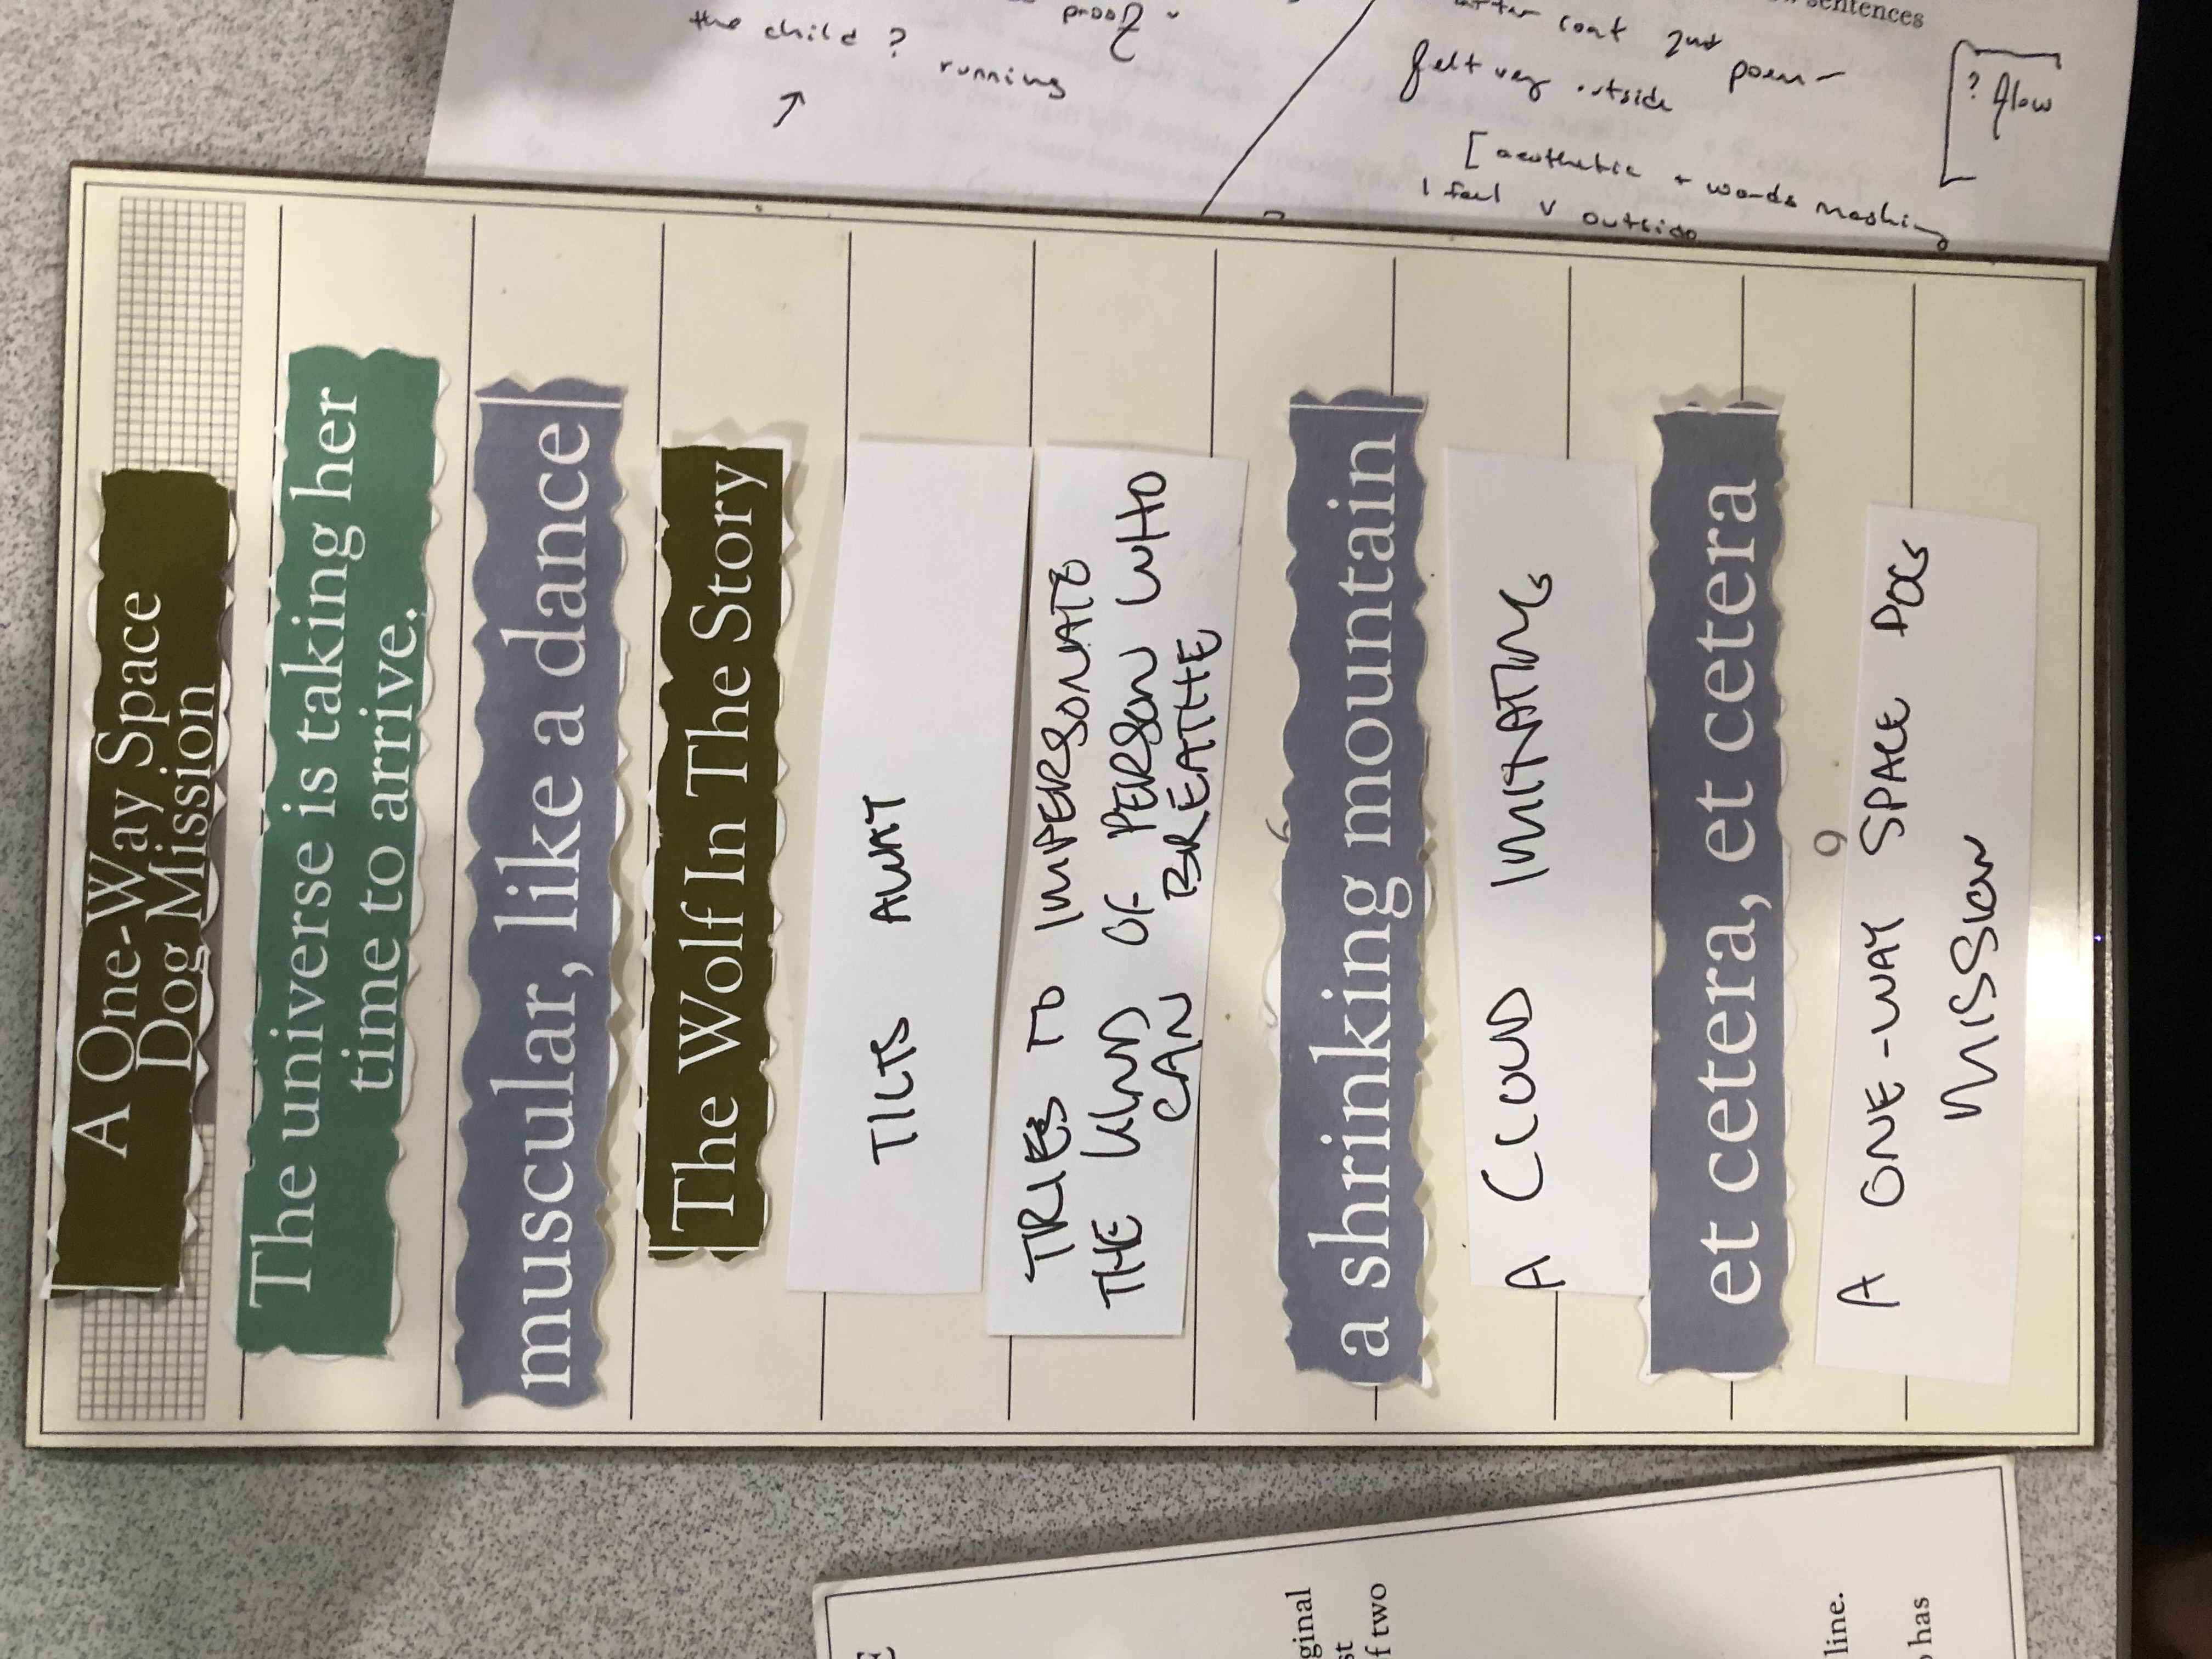 proof
the child ? running
sentences
coat 2nd poem -
felt very outside
[ aesthetic + words mashing
I feel v outside
? flow
A One-Way Space
Dog Mission
The universe is taking her
time to arrive.
muscular, like a dance
The Wolf In The Story
TILTS AWAY
TRIES TO IMPERSONATE
THE KIND OF PERSON WHO
CAN BREATHE
a shrinking mountain
A CLOUD IMITATING
et cetera, et cetera
9
A ONE-WAY SPACE DOG
MISSION
ginal
st
f two
line.
has